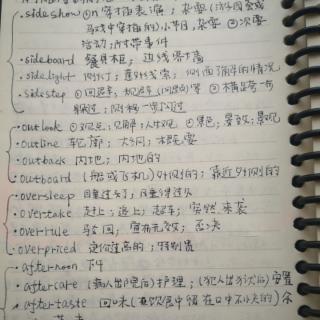 ·sideshow ①穿插表演;杂耍(游园会或
马戏中穿插的)小节目,杂耍 ②次要
活动;附带事件
·sideboard 餐具柜;
·side light 侧灯;
·sidestep ①回避 ②横跨一步
躲过;
·outlook ①观点;见解;人生观 ②景色;景致;景观
·outline 轮廓;大纲;概要
·outback 内地;内地的
·outboard (船或飞机)外侧的;靠近外侧的
·oversleep 睡过头;睡得过久
·overtake 赶上;追上;超车;突然来袭
·over-rule 驳回;宣布无效;否决
·overpriced 定价过高的;特别贵
·afternoon 下午
·aftercare (病人出院后)护理;(犯人出狱后)安置
·aftertaste 回味(喜饮食中留在口中不久的)余